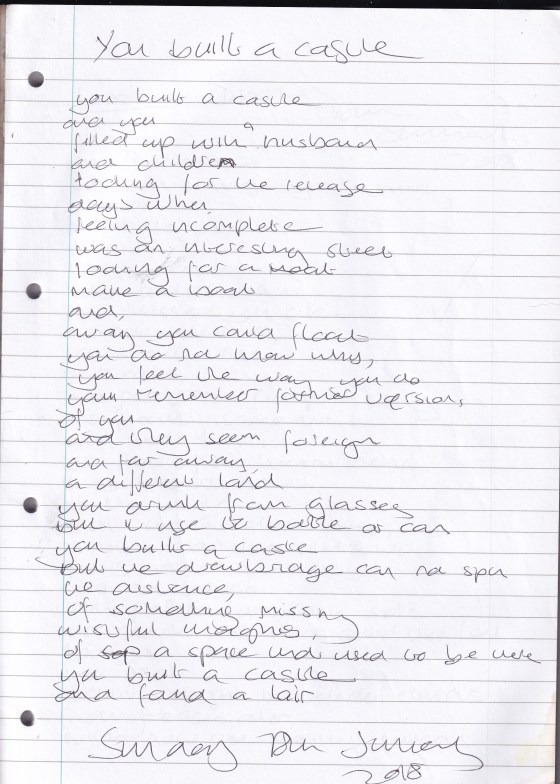 You built a castle
you built a castle
and you
filled up with a husband
and children
looking for the release
days when
feeling incomplete
was an interesting street
looking for a moat
make a boat
and,
away you could float
you do not know why,
you feel the way you do
you remember former versions,
of you
and they seem foreign
and far away
a different land
you drink from glasses
but it use to bottle or can
you built a castle
but the drawbridge can not span
the distance,
of something missing
wistful
of a space that used to be there
you built a castle
and found a lair
Sunday
2018